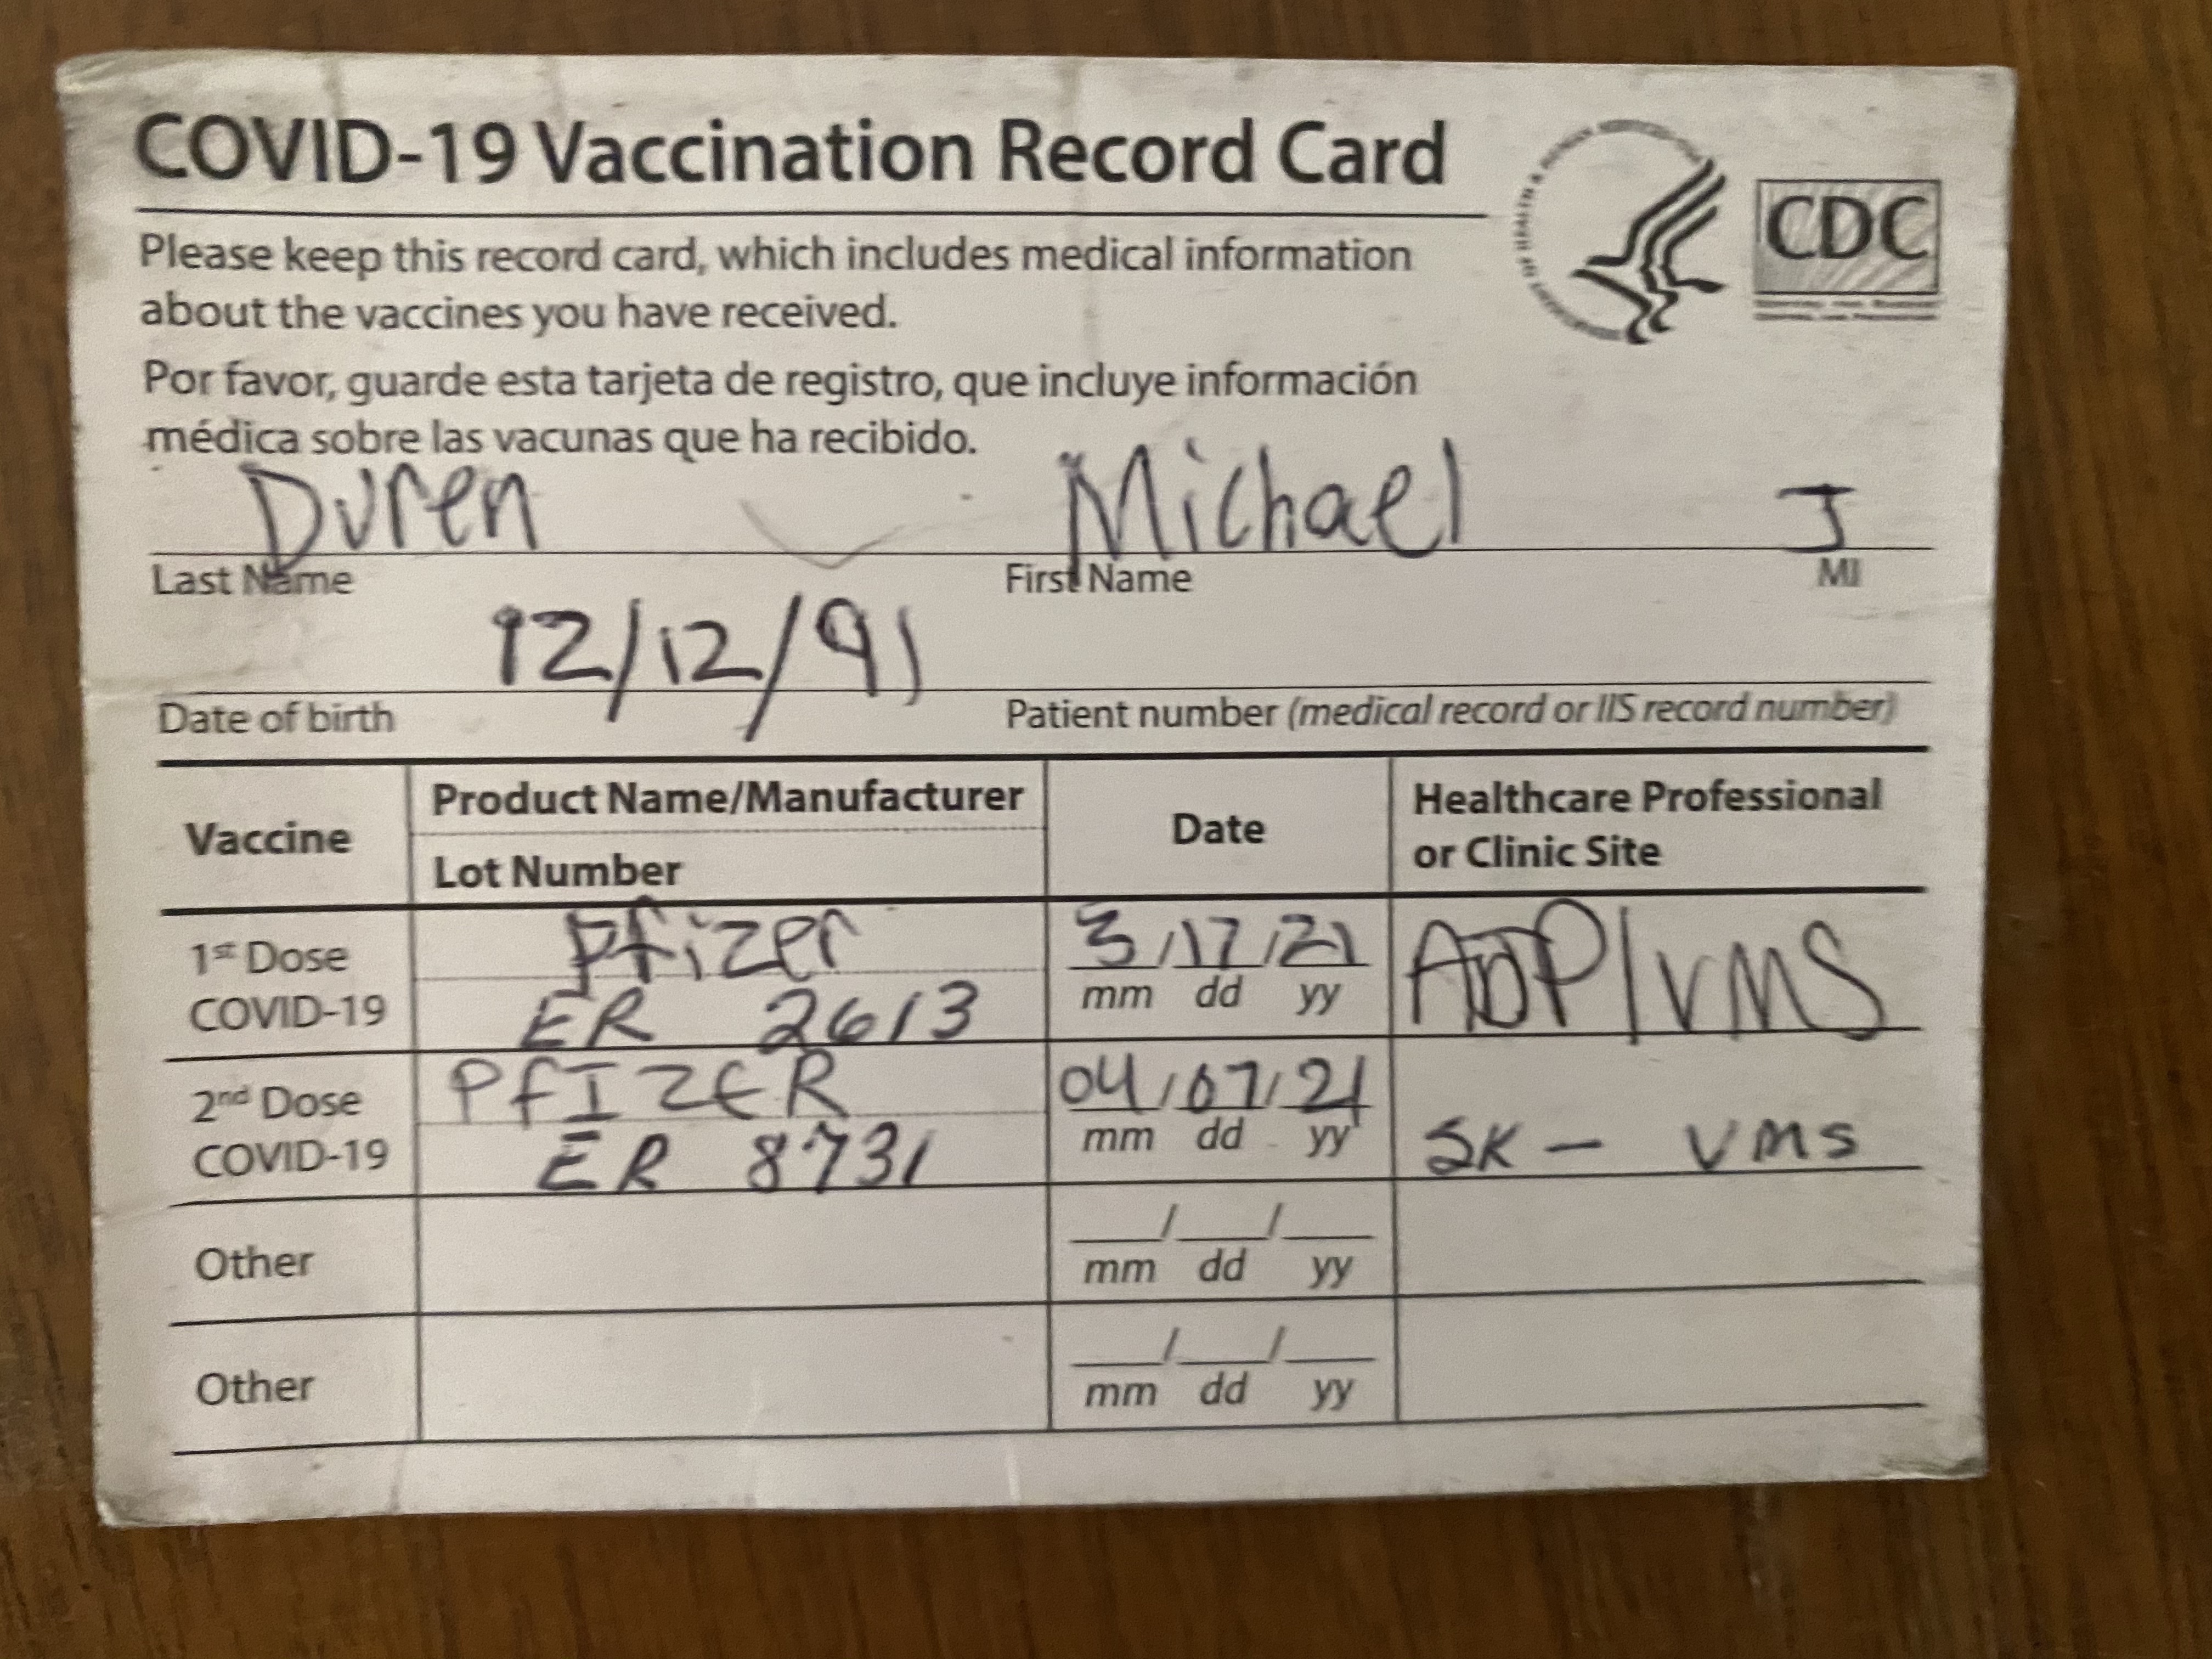 COVID-19 Vaccination Record Card
CDC
Please keep this record card, which includes medical information
about the vaccines you have received.
Por favor, guarde esta tarjeta de registro, que incluye información
médica sobre las vacunas que ha recibido.
Duren Michael J
Last Name First Name MI
12/12/91
Date of birth Patient number (medical record or IIS record number)
Vaccine
Product Name/Manufacturer
Lot Number
Date
Healthcare Professional
or Clinic Site
1st Dose
COVID-19
Pfizer
ER 2613
3/17/21
mm dd yy
ADP/VMS
2nd Dose
COVID-19
PfIZER
ER 8731
04/07/21
mm dd yy
SK - VMS
Other
__/__/__
mm dd yy
Other
__/__/__
mm dd yy